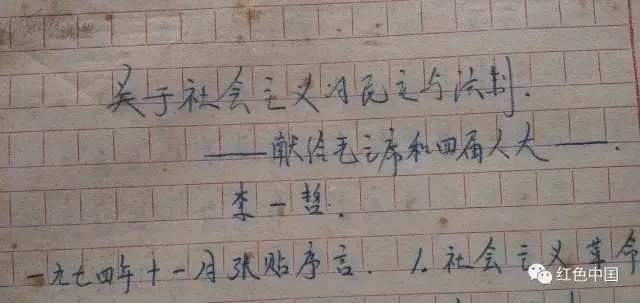 关于社会主义的民主与法制.
——献给毛主席和四届人大——.
李一哲.
一九七四年十一月张贴序言. 1. 社会主义革命
红色中国